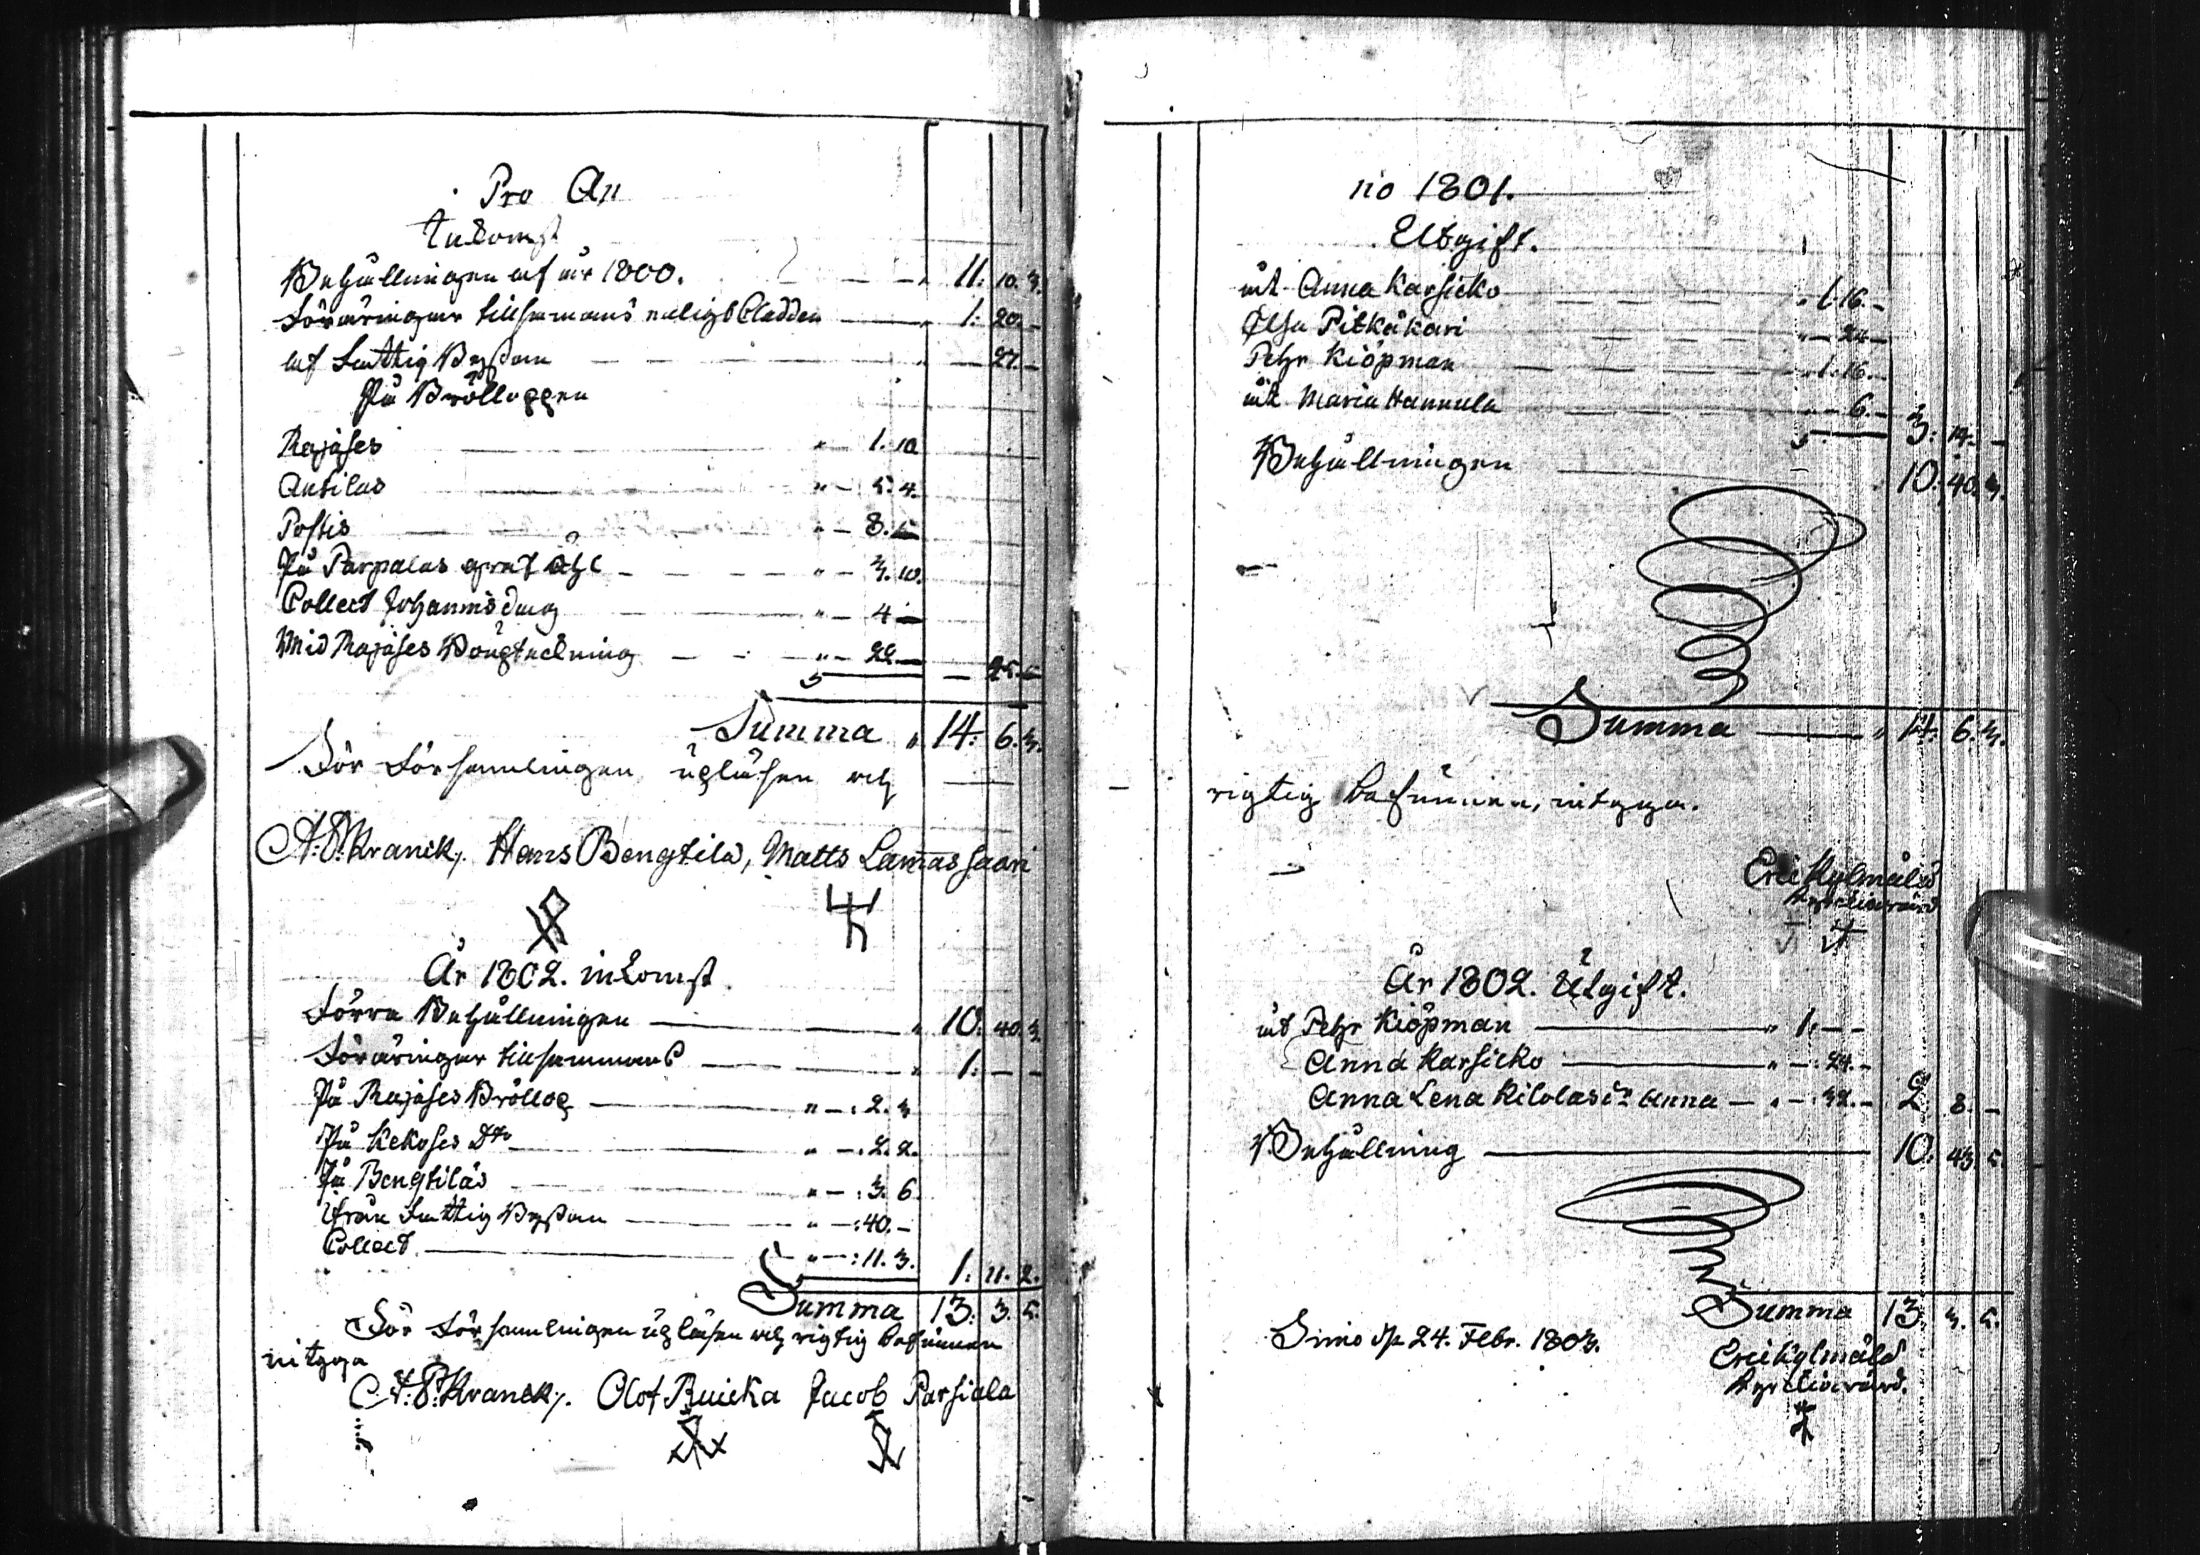 Pro An
Inkomst
Behållningen af år 1800. — — — " 11. 10. 3.
Föräringar tillsamans enligt bladden — " 1. 20. –
af Fattig Byssan — — — " — 27. –
På Brölloppen
Rajases — " 1. 10
Antilas — " – 5. 4.
Postis — " – 8. –
På Parpalas — " – 3. 10.
Collect Johannis dag — " – 4 –
Wid Rajases — " – 22 –
— 45. –
Summa " 14. 6. 3.
För Församlingen upläsen och
A. P. Kranck, Hans Bengtila, Matts Lamassaari
År 1802. inkomst
Förra Behållningen — " 10. 40. 3
Föräringar tillsammans — " 1. – –
På Rajases Bröllop — " –: 2. 3
På Kekoses Dto — " –: 2. 2.
På Bengtilas — " –: 3. 6
ifrån Fattig Byssan — " –: 40. –
Collect — " –: 11. 3.
1. 11. 2.
Summa 13. 3. 5.
För Församlingen upläsen och rigtig befunnen
intyga
A. P. Kranck. Olof Ruicka Jacob Parsiala
no 1801.
Utgift.
åt Anna Karsicko — " 1. 16. –
Elsa Pitkäkari — " – 24 –
Pehr Kiöpman — " 1. 16. –
åt Maria Hannula — " – 6. –
3. 14. –
Behållningen — 10. 40. 3.
Summa — " 14. 6. 3.
rigtig befunnen, intyga.
Eric Kylmälä
Kyrckiovärd
År 1802. Utgift.
åt Pehr Kiöpman — " 1. – –
Anna Karsicko — " –: 24. –
Anna Lena Kilolas Anna — " –: 32. – 2. 8. –
Behållning — 10. 43. 5.
Summa 13. 3. 5.
Simo d. 24. Febr. 1803.
Eric Kylmälä
Kyrckiovärd.